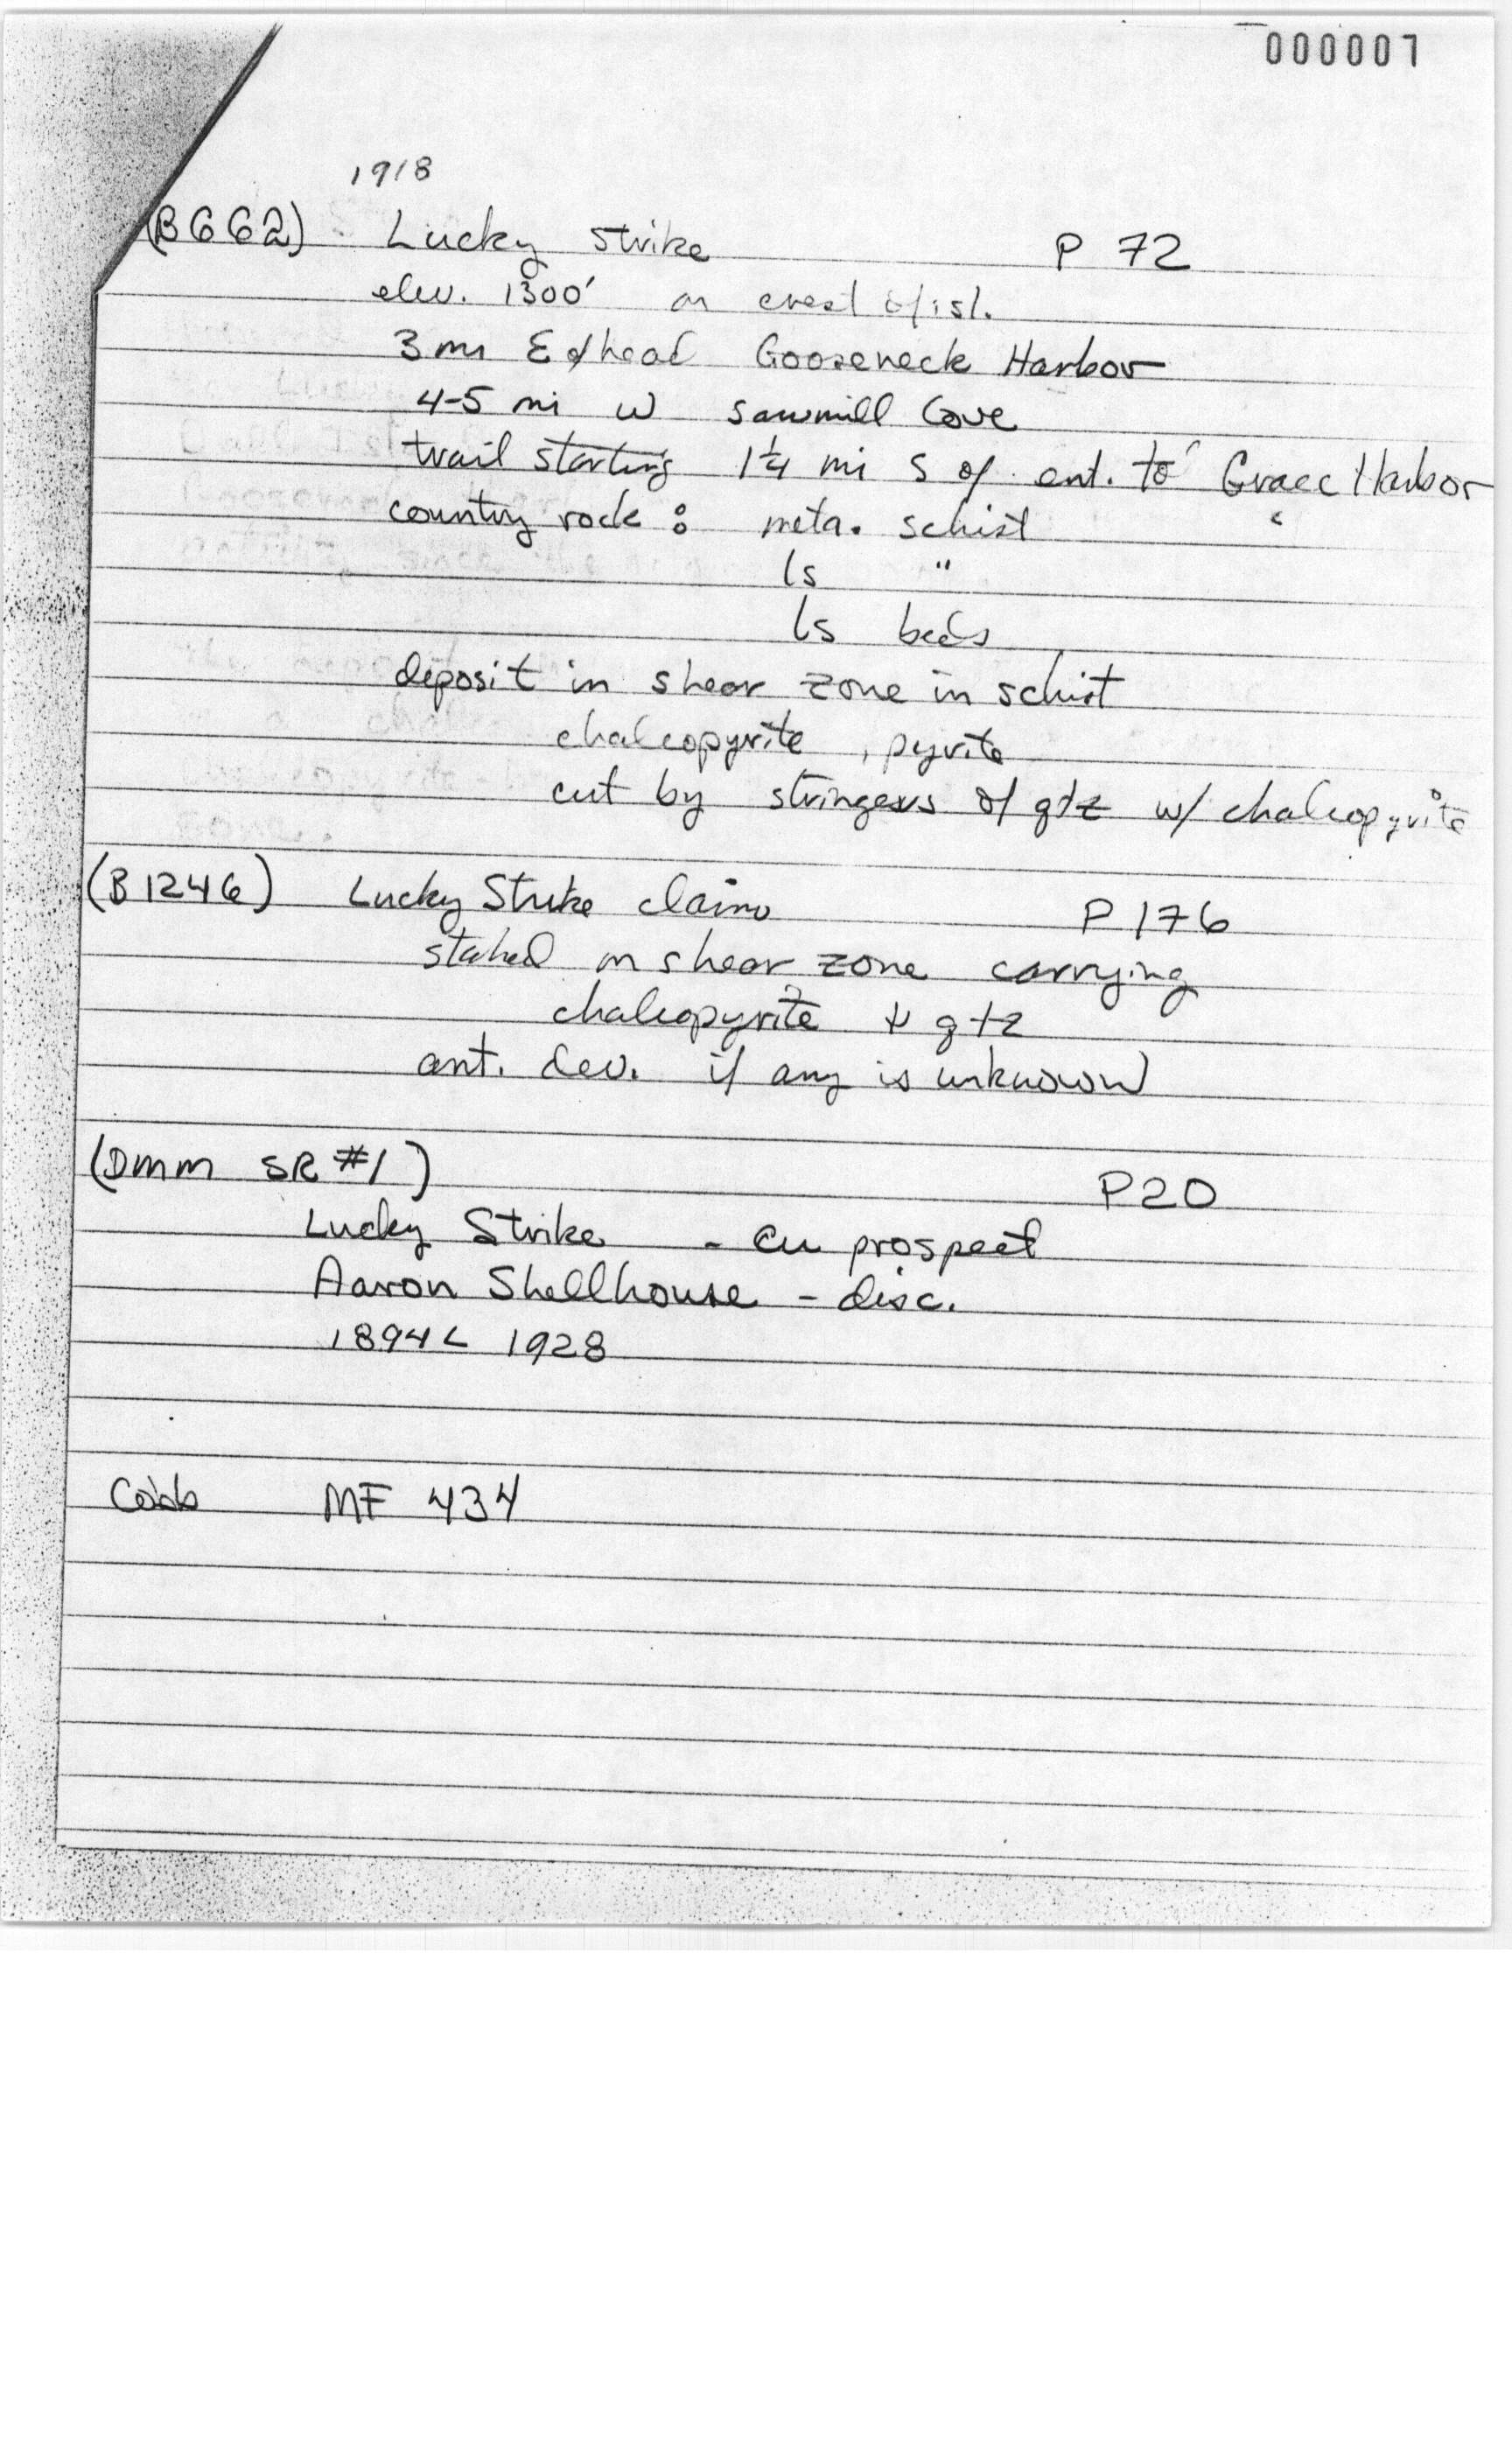 000007
1918
(B662) Lucky Strike P 72
elev. 1300' on crest of isl.
3 mi E of head Gooseneck Harbor
4-5 mi W Sawmill Cove
trail starting 1 1/4 mi S of ent. to Grace Harbor
country rock : meta. schist
ls "
ls beds
deposit in shear zone in schist
chalcopyrite, pyrite
cut by stringers of qtz w/ chalcopyrite
(B1246) Lucky Strike claim P 176
staked on shear zone carrying
chalcopyrite & qtz
amt. dev. if any is unknown
(DMM SR #1) P20
Lucky Strike - Cu prospect
Aaron Shellhouse - disc.
1894 < 1928
Cobb MF 434